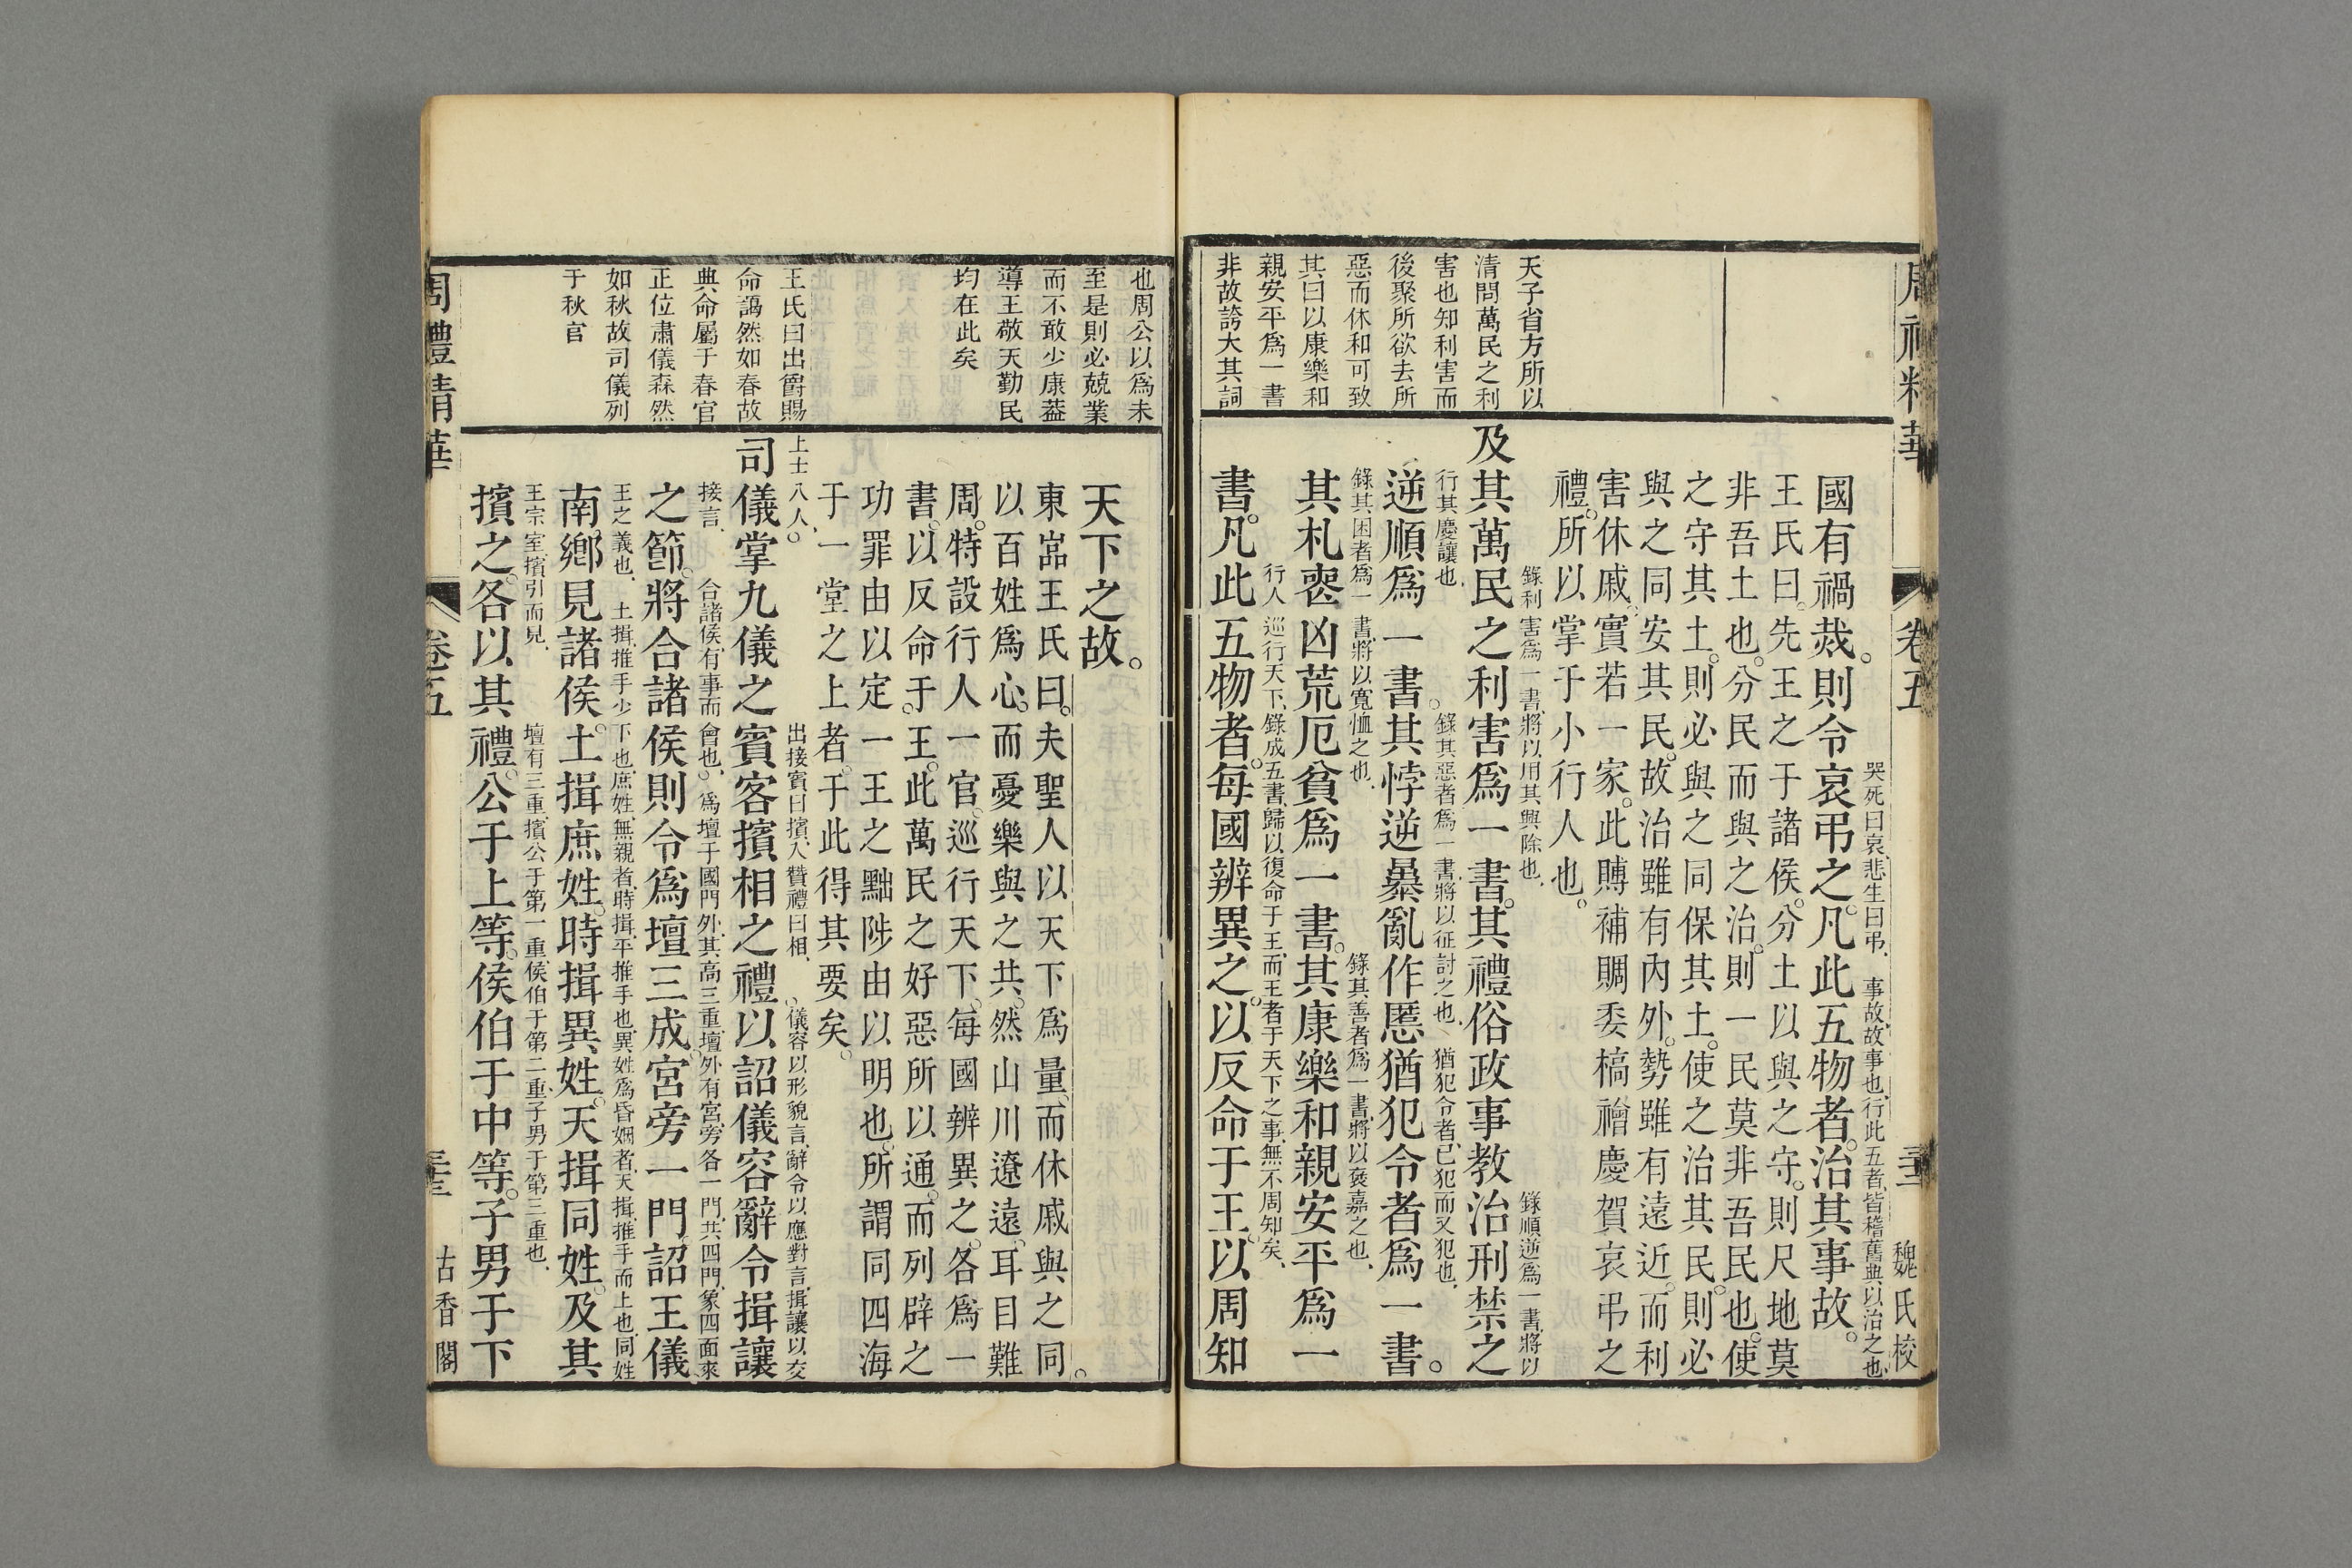 周禮精華
卷五
三十二
魏氏校
天子省方所以
清問萬民之利
害也知利害而
後聚所欲去所
惡而休和可致
其曰以康樂和
親安平爲一書
非故誇大其詞
哭死曰哀、悲生曰弔、事故、故事也、行此五者、皆稽舊典以治之也、
國有禍烖。則令哀弔之。凡此五物者。治其事故。
王氏曰。先王之于諸侯。分土以與之守。則尺地莫
非吾土也。分民而與之治。則一民莫非吾民也。使
之守其土。則必與之同保其土。使之治其民。則必
與之同安其民。故治雖有內外。勢雖有遠近。而利
害休戚。實若一家。此賻補賙委槁禬慶賀哀弔之
禮。所以掌于小行人也。
錄利害爲一書、將以用其興除也、錄順逆爲一書、將以
及其萬民之利害爲一書。其禮俗政事教治刑禁之
行其慶讓也、錄其惡者爲一書、將以征討之也、猶犯令者、已犯而又犯也、
逆順爲一書。其悖逆暴亂作慝猶犯令者爲一書。
錄其困者爲一書、將以寬恤之也、錄其善者爲一書、將以褒嘉之也、
其札喪凶荒厄貧爲一書。其康樂和親安平爲一
行人巡行天下、錄成五書、歸以復命于王、而王者于天下之事、無不周知矣、
書。凡此五物者。每國辨異之。以反命于王。以周知
也周公以爲未
至是則必兢業
而不敢少康蓋
導王敬天勤民
均在此矣
王氏曰出爵賜
命藹然如春故
典命屬于春官
正位肅儀森然
如秋故司儀列
于秋官
天下之故。
東嵒王氏曰。夫聖人以天下爲量、而休戚與之同。
以百姓爲心。而憂樂與之共。然山川遼遠。耳目難
周。特設行人一官。巡行天下、每國辨異之。各爲一
書。以反命于王。此萬民之好惡所以通。而列辟之
功罪由以定一王之黜陟由以明也。所謂同四海
于一堂之上者。于此得其要矣。
上士八人、出接賓曰擯、入贊禮曰相、儀容以形貌言、辭令以應對言、揖讓以交
司儀掌九儀之賓客擯相之禮以詔儀容辭令揖讓
接言、合諸侯、有事而會也、爲壇于國門外、其高三重、壇外有宮、旁各一門、共四門、象四面來
之節。將合諸侯則令爲壇三成宮旁一門詔王儀
王之義也、土揖、推手少下也、庶姓、無親者、時揖、平推手也、異姓爲昏姻者、天揖、推手而上也、同姓
南鄉見諸侯。土揖庶姓。時揖異姓。天揖同姓。及其
王宗室、擯引而見、壇有三重、擯公于第一重、侯伯于第二重、子男于第三重也、
擯之。各以其禮。公于上等。侯伯于中等。子男于下
周禮精華
卷五
三十二
古香閣